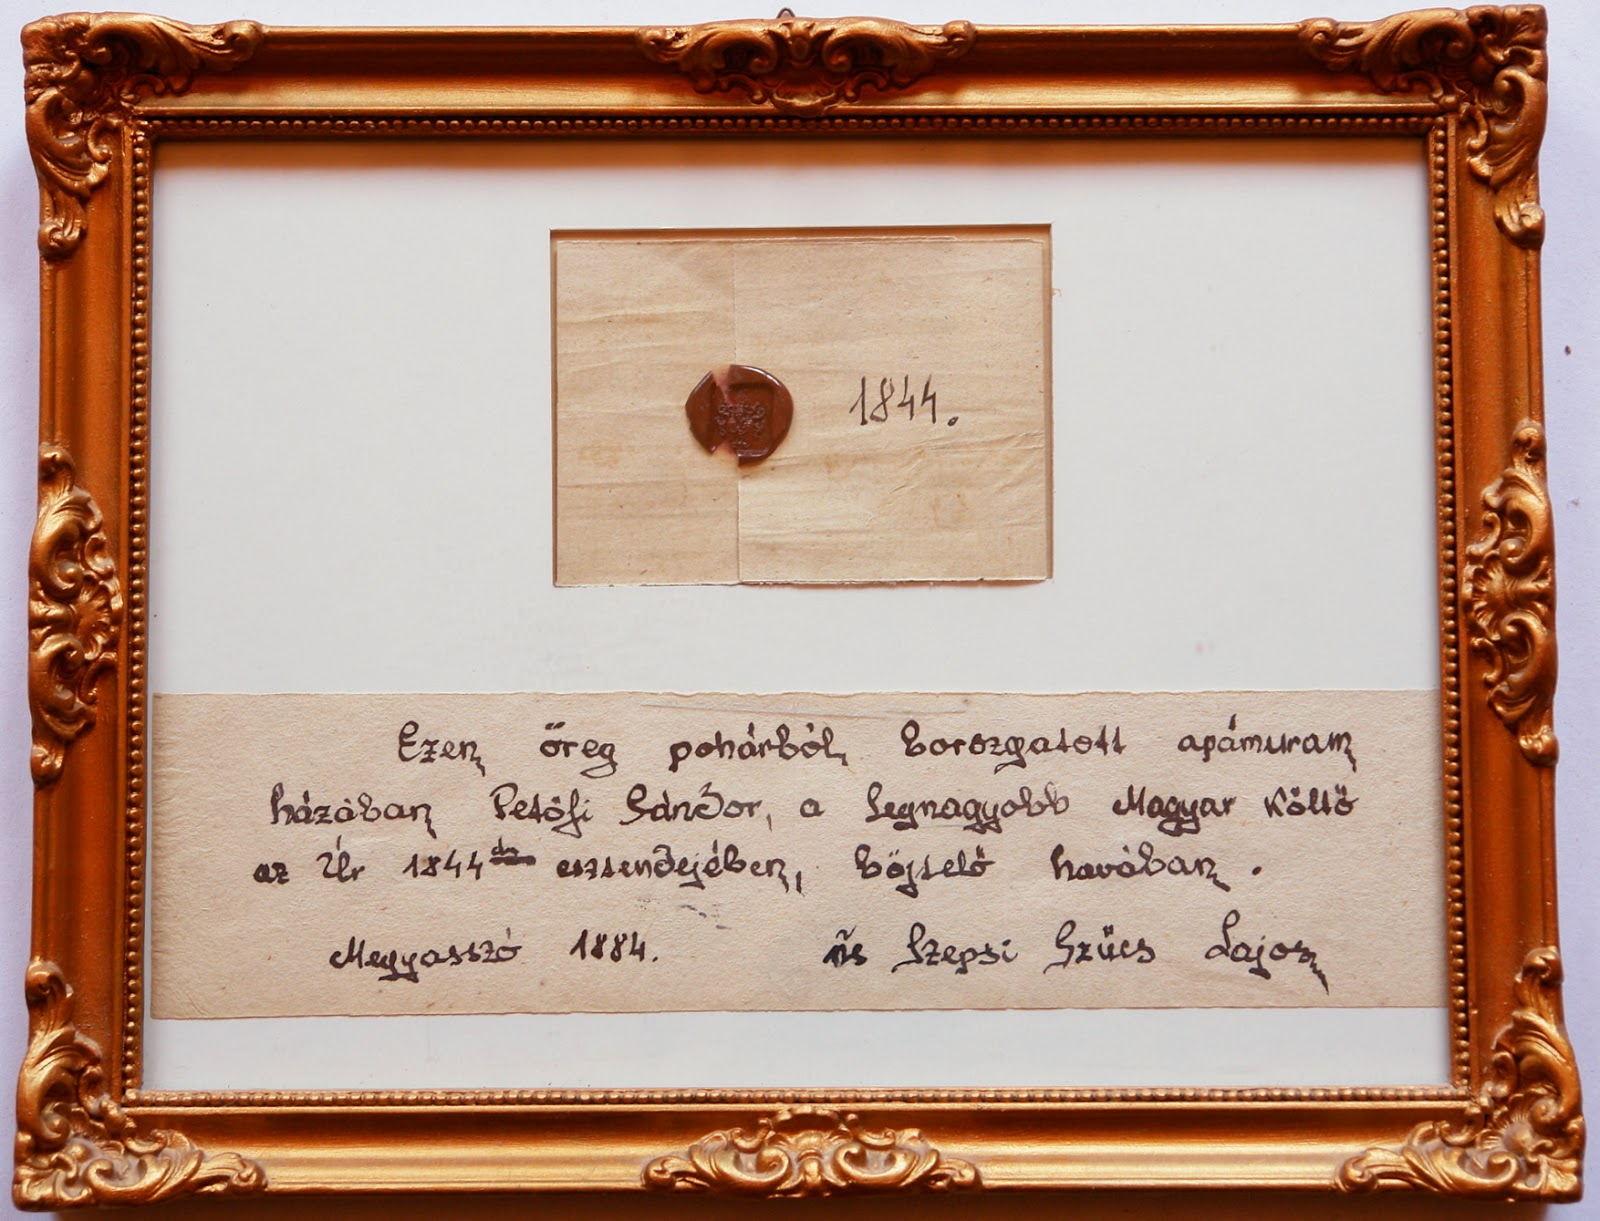 1844.
Ezen öreg pohárból borozgatott apámuram
házában Petőfi Sándor, a legnagyobb Magyar Költő
az Úr 1844 esztendejében, böjtelő havában.
Megyaszó 1884. ifjs Szepsi Szűcs Lajos